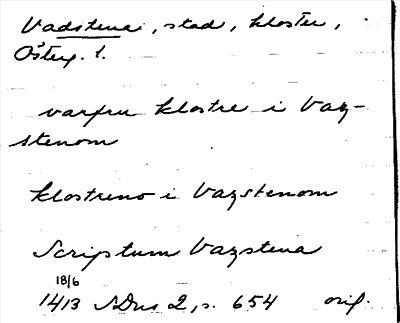 Vadstena, stad, kloster,
Österg. l.
varfru klostre i Vaz-
stenom
klostreno i Vazstenom
Scriptum Vazstena
18/6
1413 SDns 2, s. 654 orig.